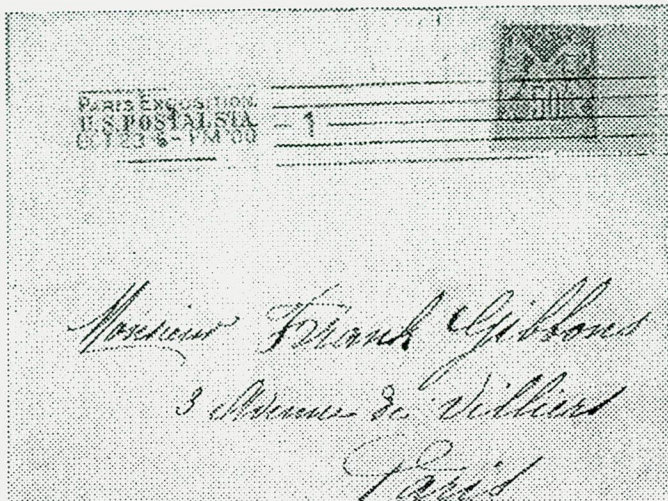 PARIS EXPOSITION.
U.S. POSTAL STA.
OCT 23 - PM '00
1
50
Monsieur Frank Gibbons
3 Avenue de Villiers
Paris